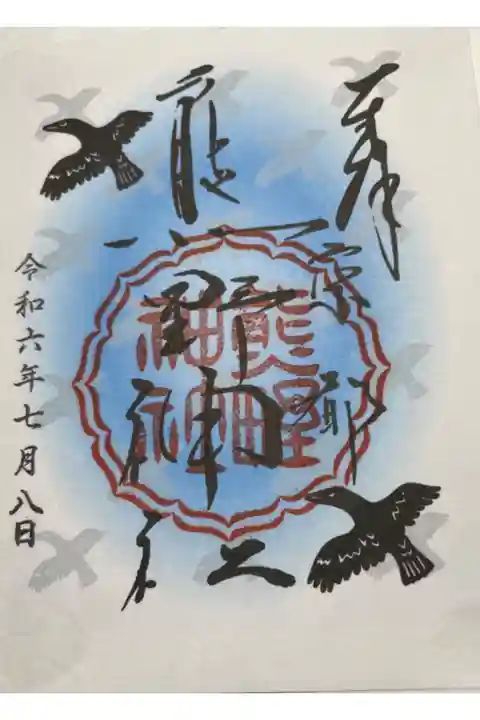 奉拝
熊野神社
令和六年七月八日